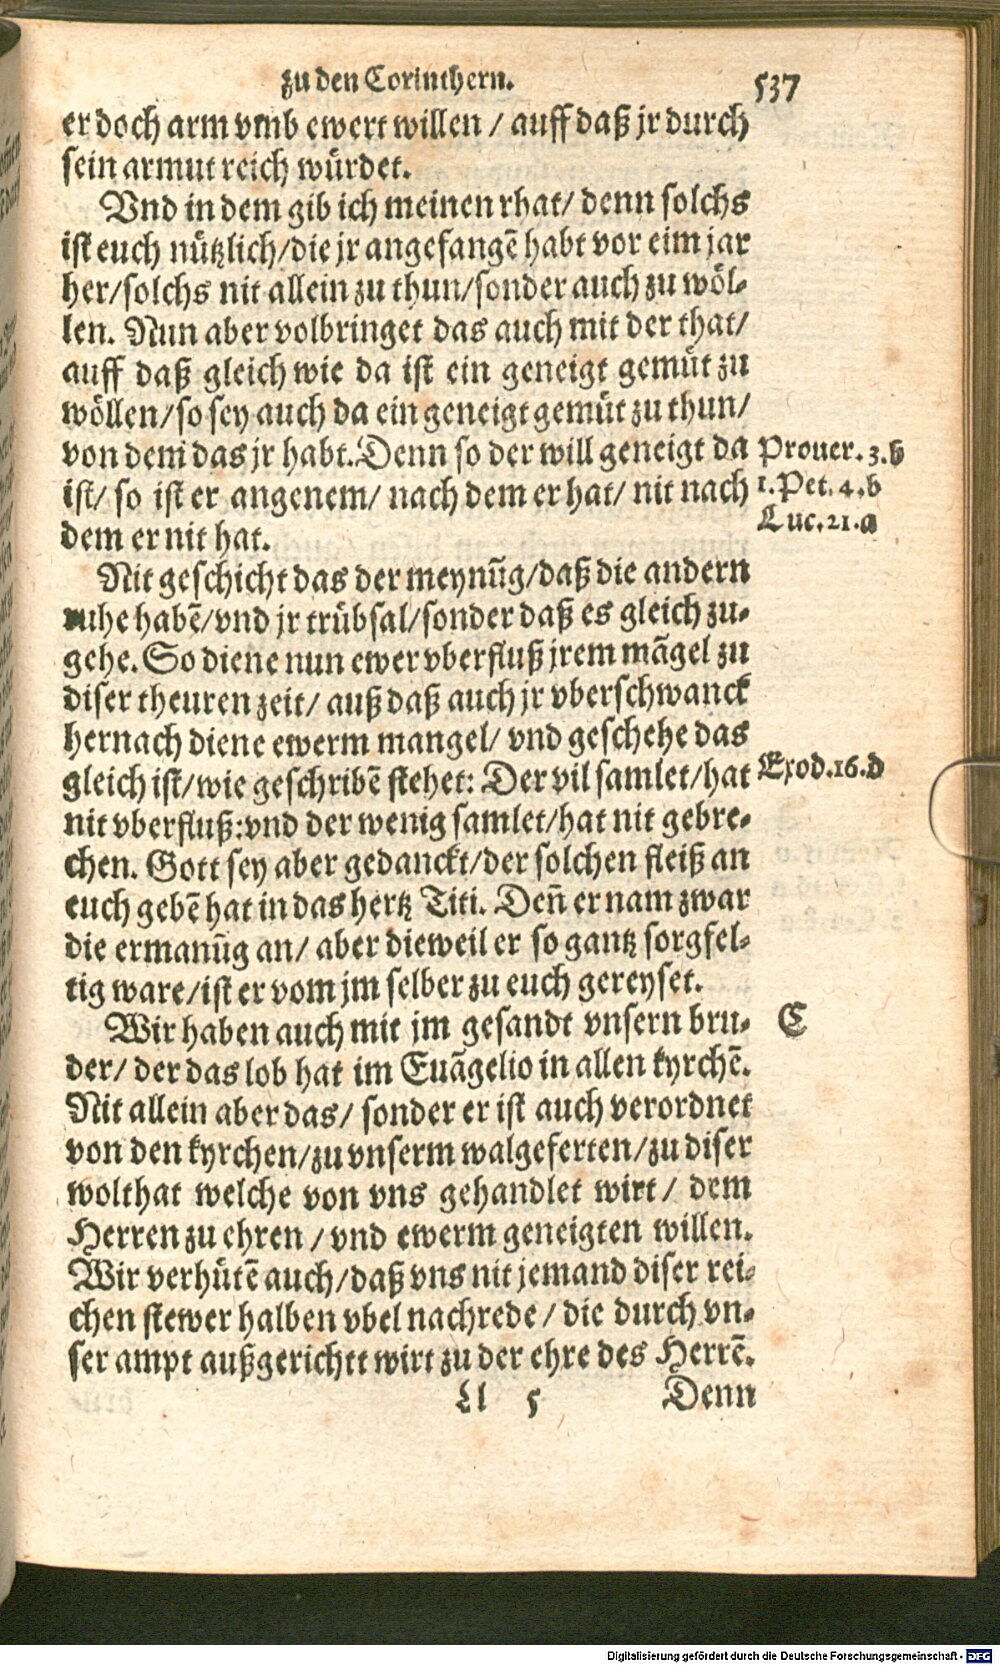 zu den Corinthern. 537
er doch arm vmb ewert willen / auff daß jr durch
sein armut reich würdet.
Vnd in dem gib ich meinen rhat / denn solchs
ist euch nützlich / die jr angefangē habt vor eim jar
her / solchs nit allein zu thun / sonder auch zu wöl-
len. Nun aber volbringet das auch mit der that /
auff daß gleich wie da ist ein geneigt gemüt zu
wöllen / so sey auch da ein geneigt gemüt zu thun /
von dem das jr habt. Denn so der will geneigt da
Prouer. 3.b
ist / so ist er angenem / nach dem er hat / nit nach
1. Pet. 4.b
Luc. 21.a
dem er nit hat.
Nit geschicht das der meynūg / daß die andern
ruhe habē / vnd jr trübsal / sonder daß es gleich zu-
gehe. So diene nun ewer vberfluß jrem māgel zu
diser theuren zeit / auß daß auch jr vberschwanck
hernach diene ewerm mangel / vnd geschehe das
gleich ist / wie geschribē stehet: Der vil samlet / hat
Exod. 16.d
nit vberfluß: vnd der wenig samlet / hat nit gebre-
chen. Gott sey aber gedanckt / der solchen fleiß an
euch gebē hat in das hertz Titi. Deñ er nam zwar
die ermanūg an / aber dieweil er so gantz sorgfel-
tig ware / ist er vom jm selber zu euch gereyset.
Wir haben auch mit jm gesandt vnsern bru-
C
der / der das lob hat im Euāgelio in allen kyrchē.
Nit allein aber das / sonder er ist auch verordnet
von den kyrchen / zu vnserm walgeferten / zu diser
wolthat welche von vns gehandlet wirt / dem
Herren zu ehren / vnd ewerm geneigten willen.
Wir verhütē auch / daß vns nit jemand diser rei-
chen stewer halben vbel nachrede / die durch vn-
ser ampt außgerichtt wirt zu der ehre des Herrē.
Ll 5 Denn
Digitalisierung gefördert durch die Deutsche Forschungsgemeinschaft - DFG